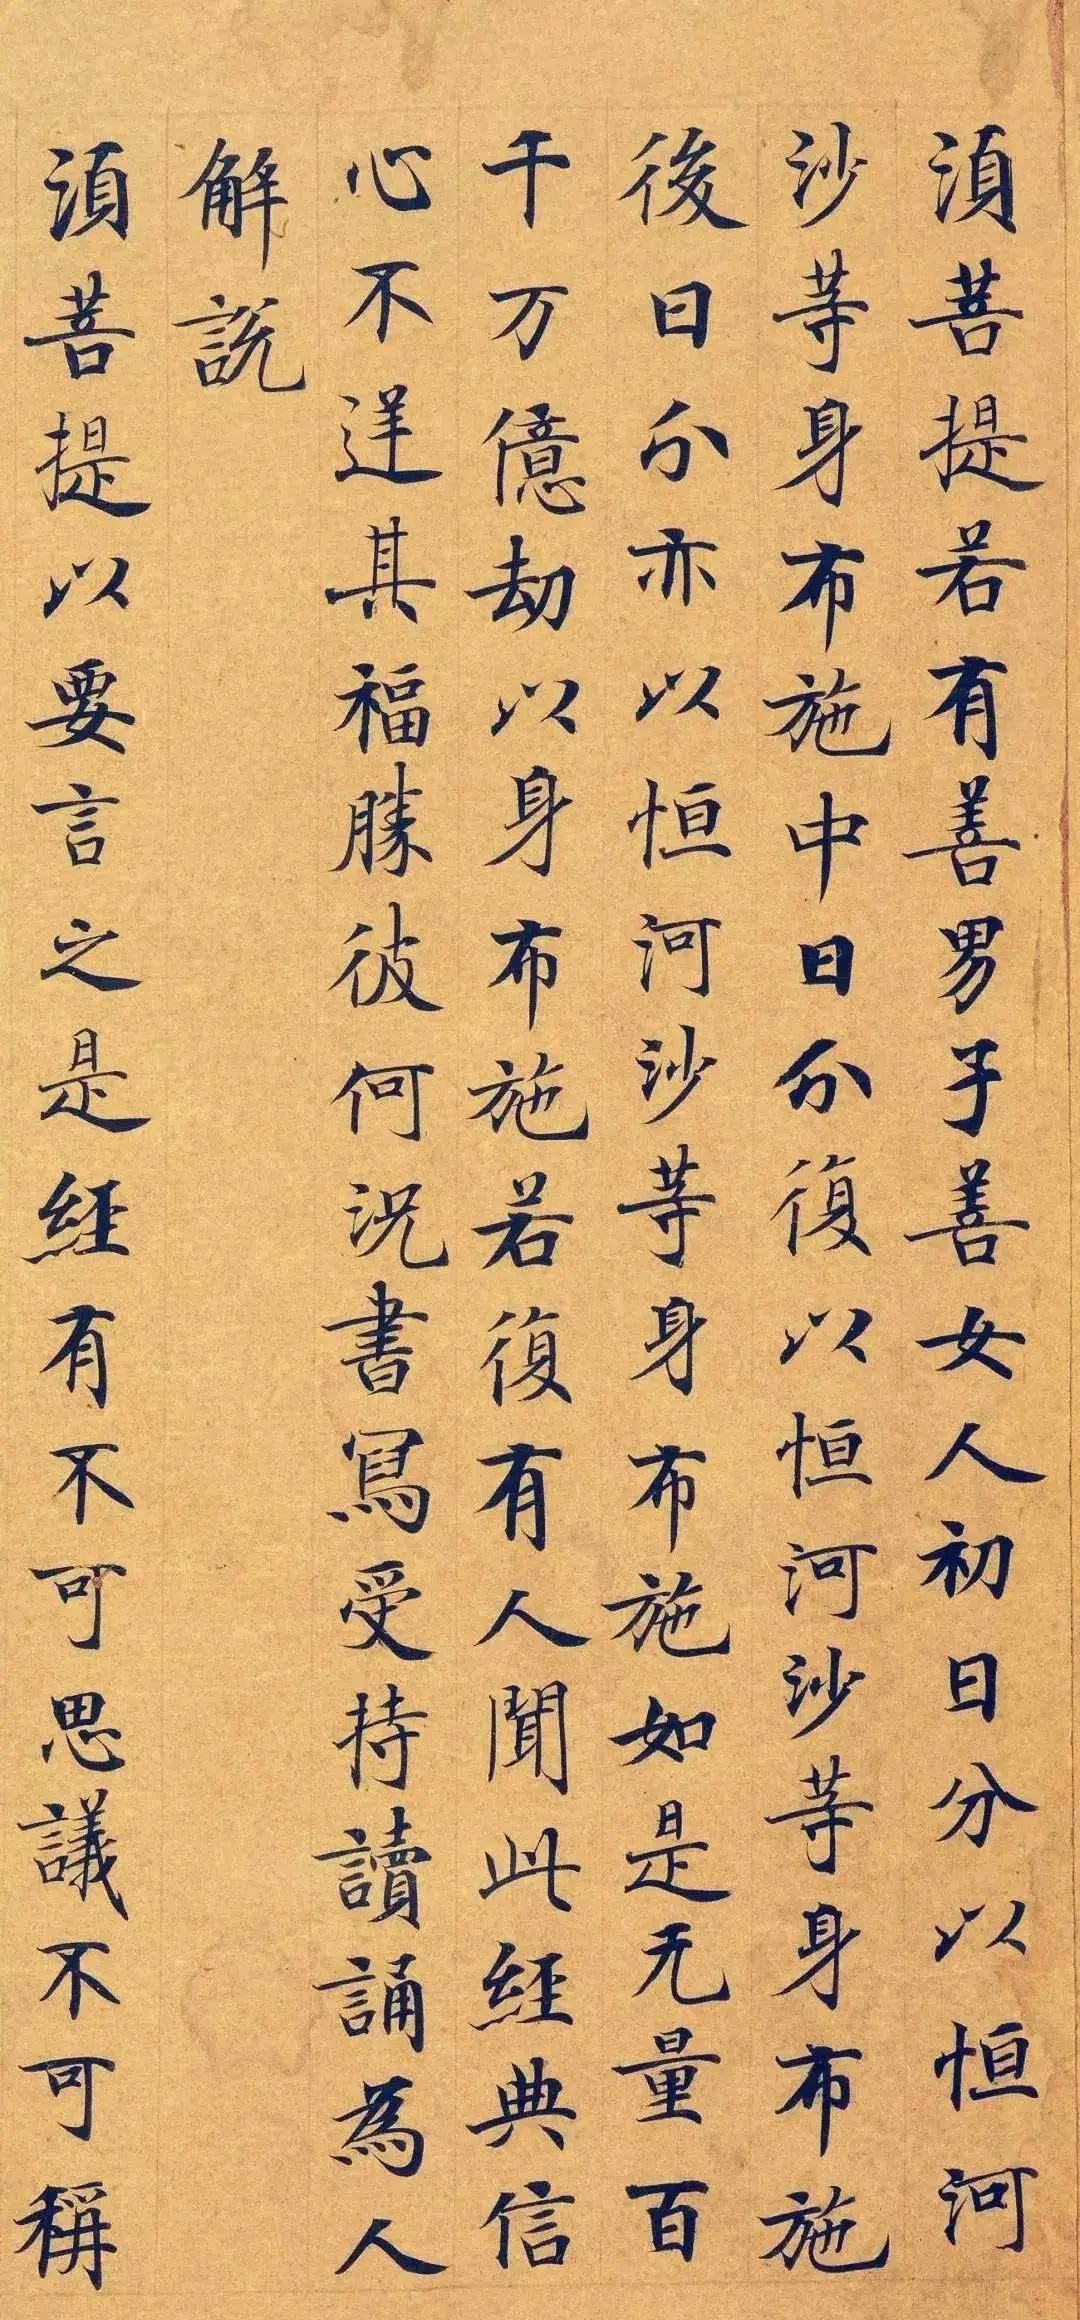 須菩提若有善男子善女人初日分以恒河
沙等身布施中日分復以恒河沙等身布施
後日分亦以恒河沙等身布施如是无量百
千万億劫以身布施若復有人聞此經典信
心不逆其福勝彼何況書寫受持讀誦為人
解說
須菩提以要言之是經有不可思議不可稱